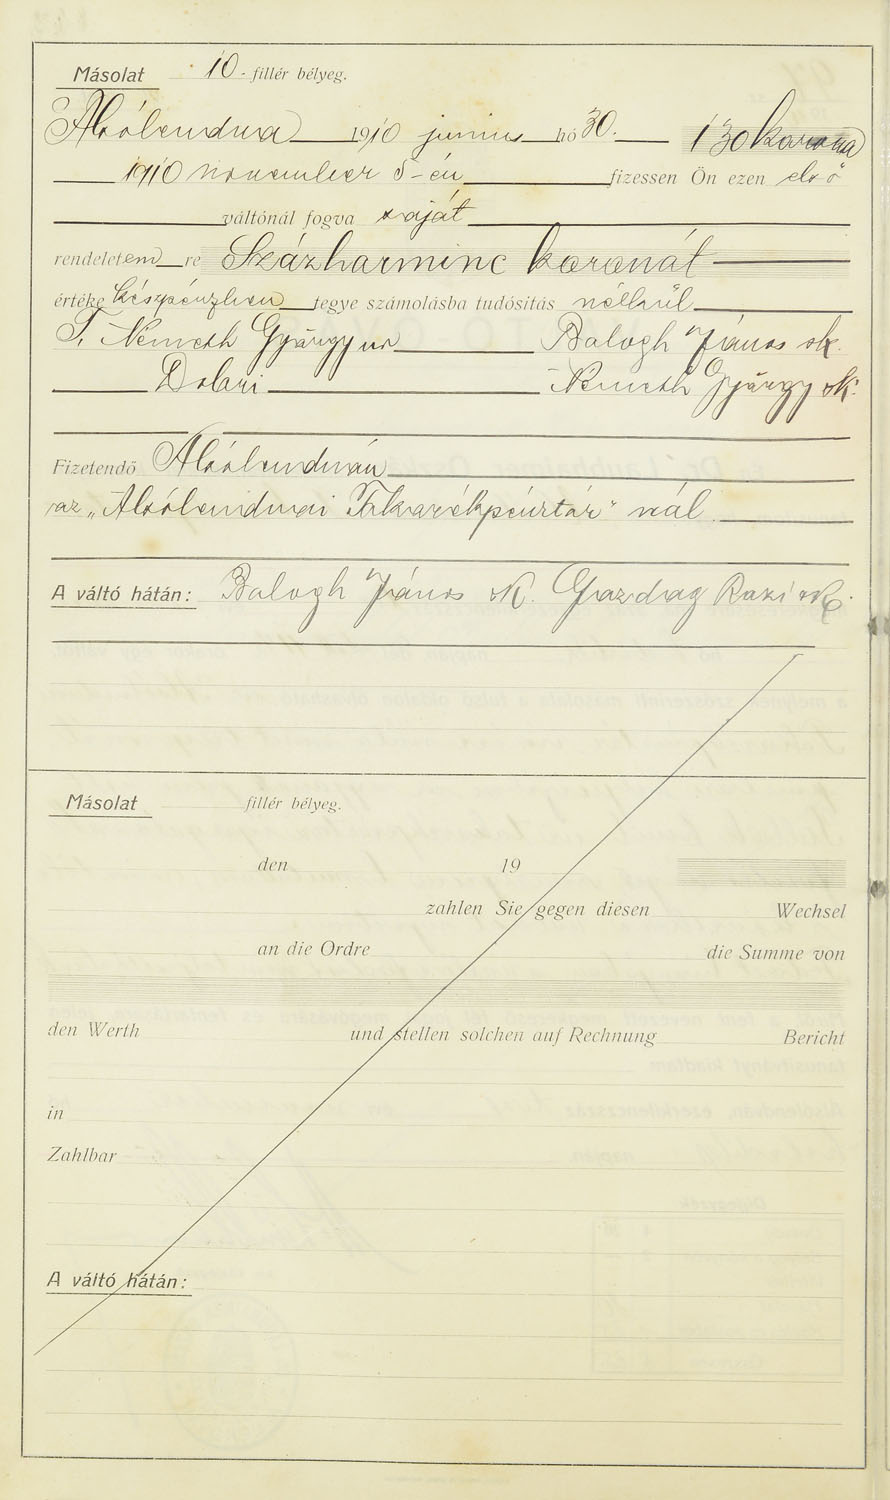 Másolat 10.- fillér bélyeg.
Alsólendva 1910 junius hó 30. 130 korona
1910 november 5-én fizessen Ön ezen első
váltónál fogva saját
rendeletem re Százharminc koronát
értéke készpénzben tegye számolásba tudósitás nélkül
T. Németh György ur Balogh János sk.
Németh György sk.
Fizetendő Alsólendván
az „Alsólendvai Takarékpénztár" nál
A váltó hátán: Balogh János sk. Gazdag Rozi sk.
Másolat fillér bélyeg.
den 19
zahlen Sie gegen diesen Wechsel
an die Ordre die Summe von
den Werth und stellen solchen auf Rechnung Bericht
in
Zahlbar
A váltó hátán: